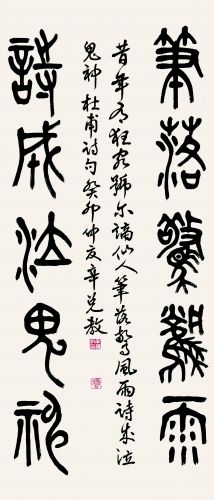 筆落驚飌雨
昔年有狂客號尔謫仙人筆落驚風雨詩成泣
鬼神 杜甫詩句癸卯仲夏辛兑教
詩成泣鬼神